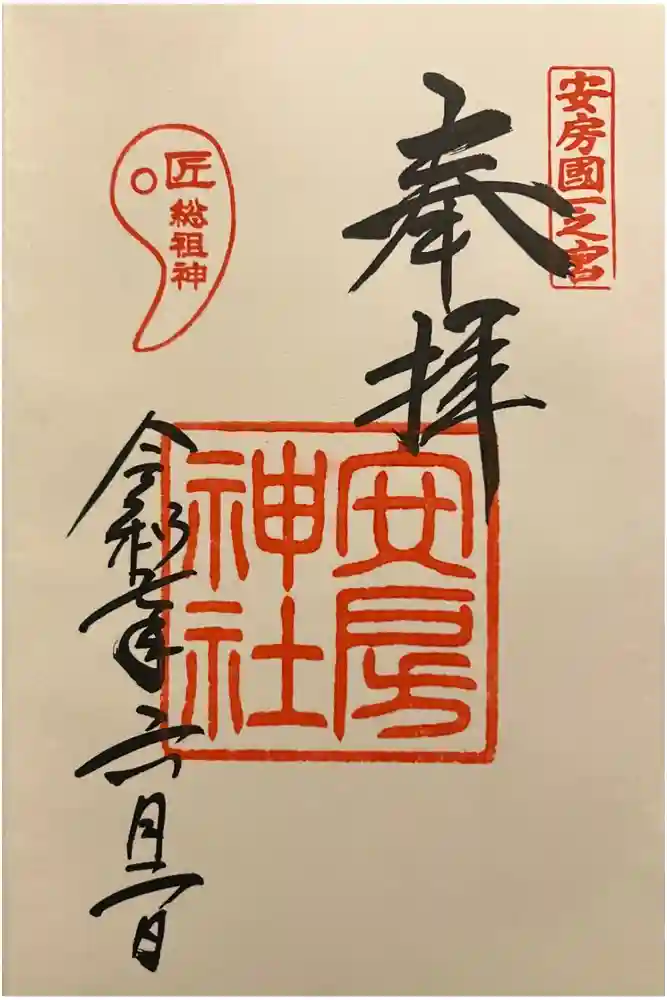 安房國一之宮
奉拝
安房神社
匠
総祖神
令和七年六月二日